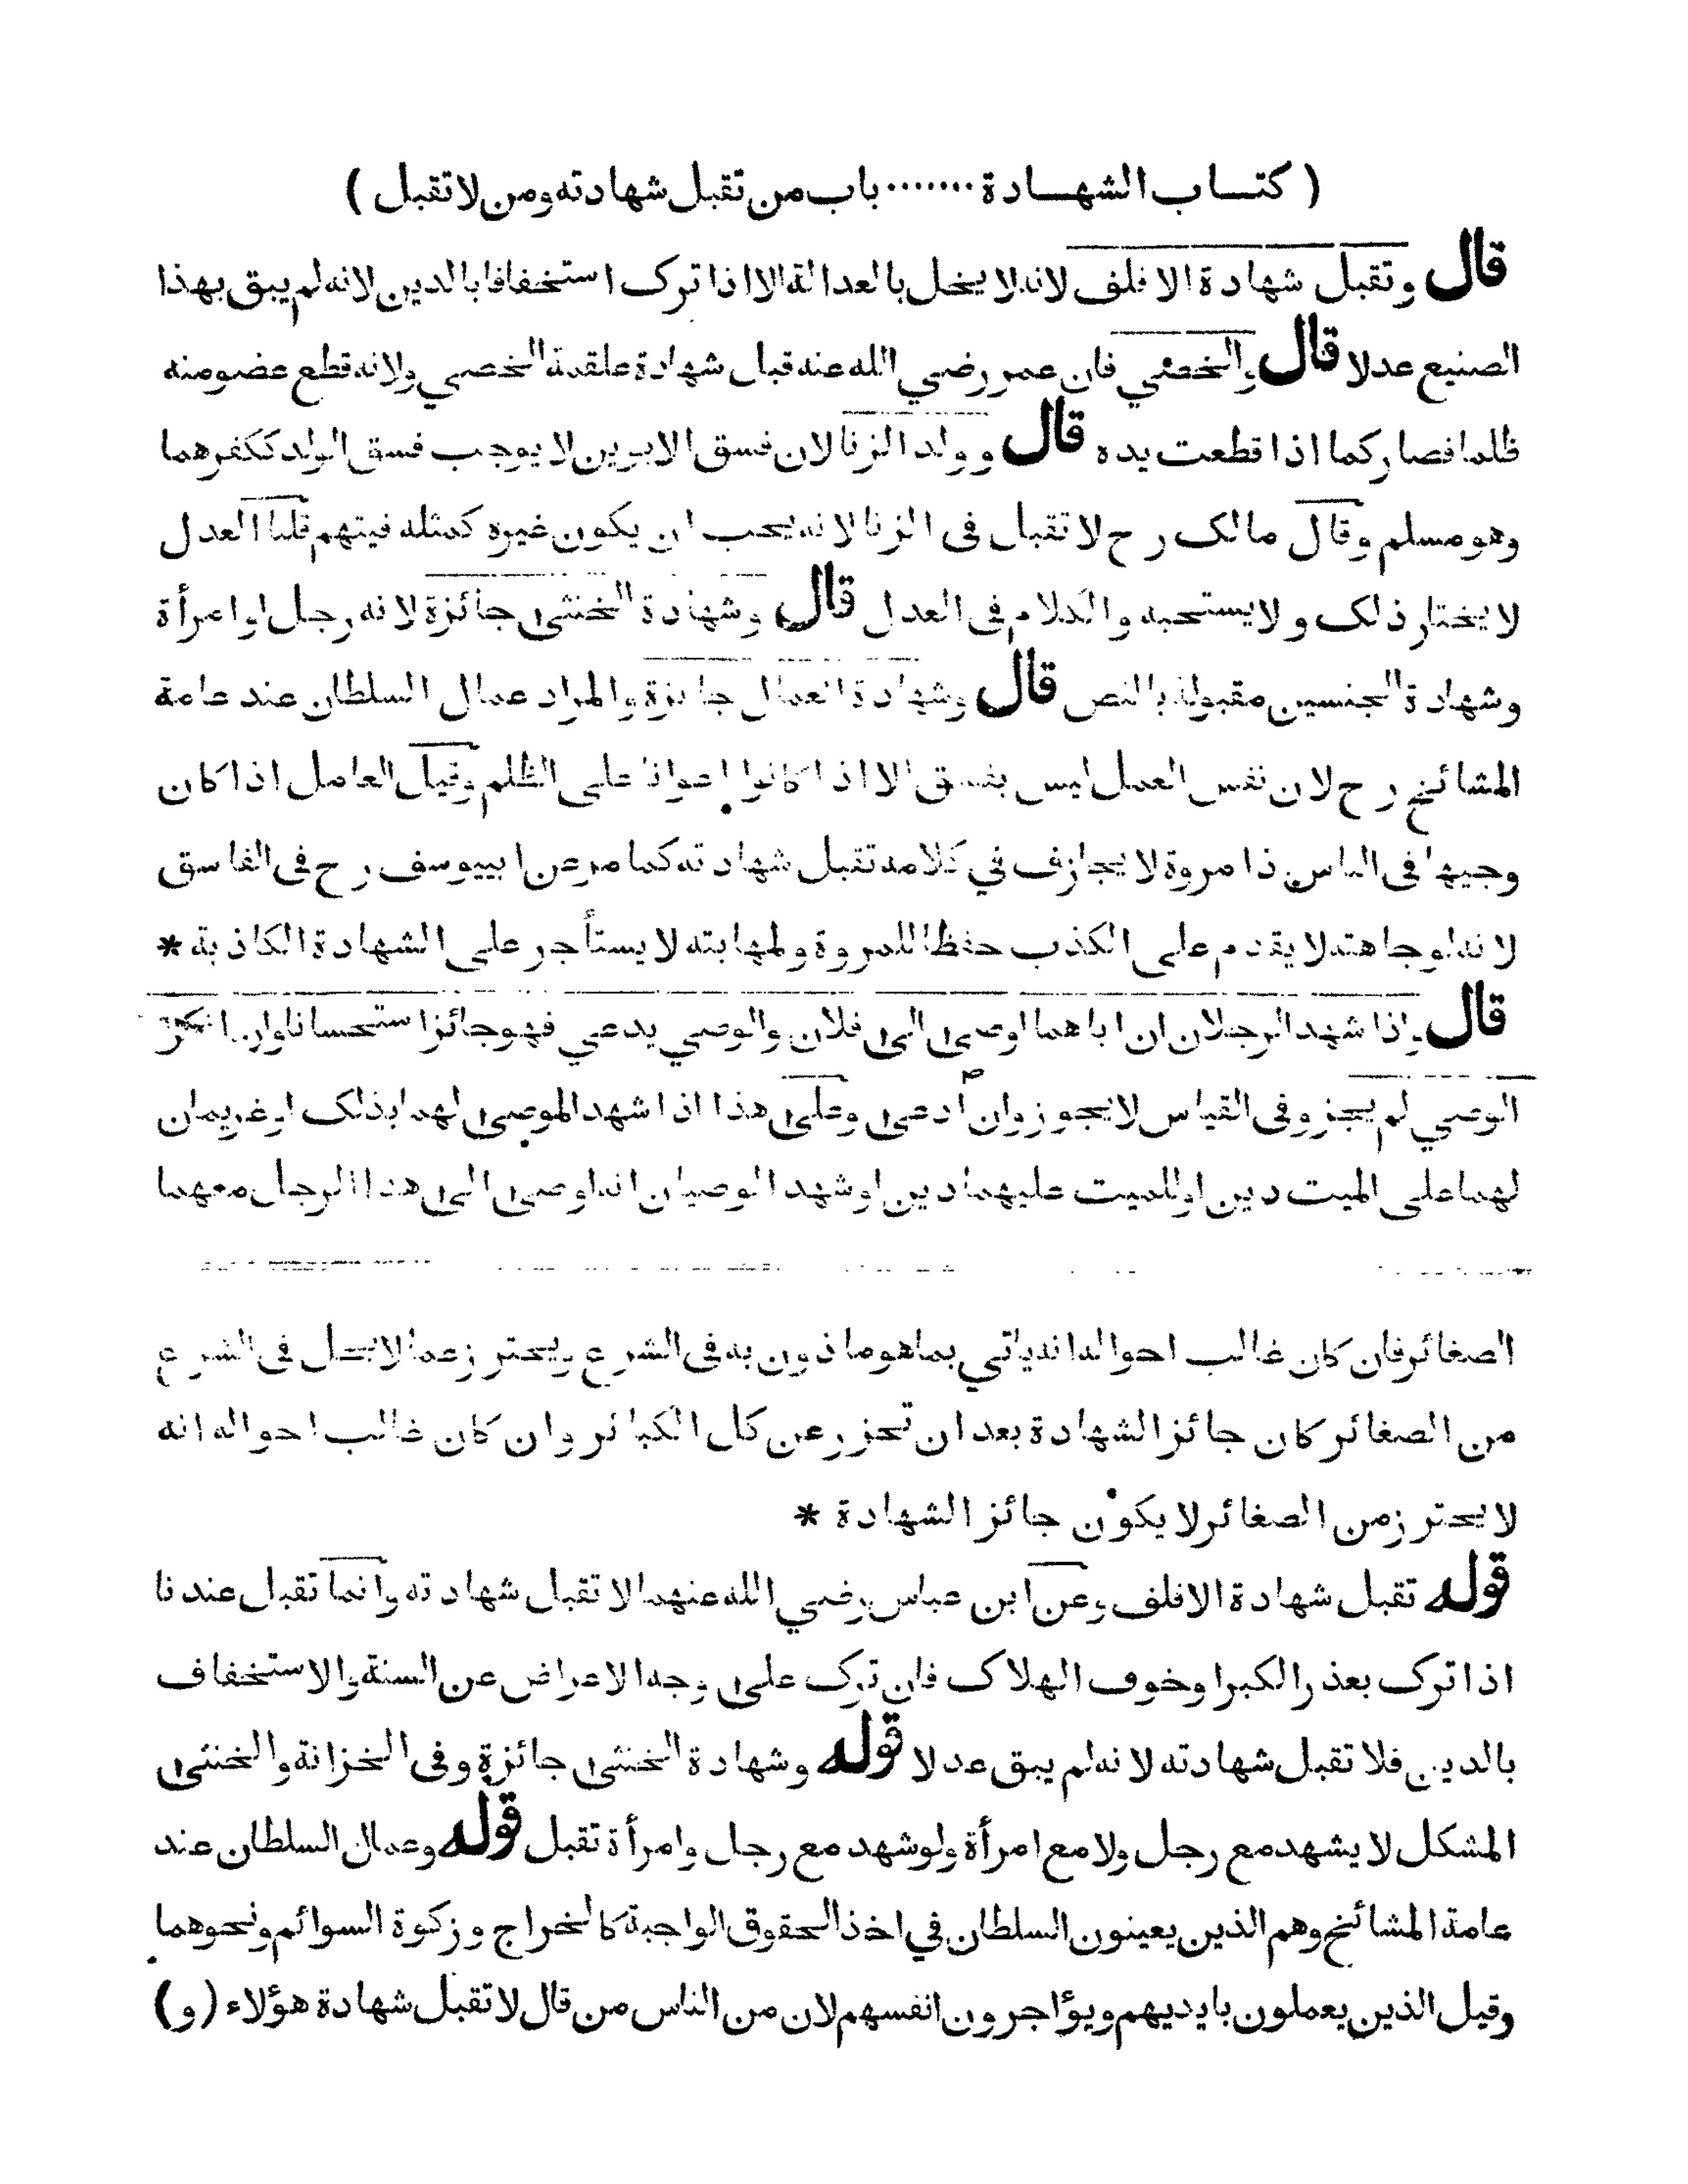 ( كتـــاب الشهـــادة ······· باب من تقبل شهادته ومن لا تقبل )
قال وتقبل شهادة الاقلف لانه لا يخل بالعدالة الا اذا ترك استخفافا بالدين لانه لم يبق بهذا
الصنيع عدلا قال والخصي فان عمر رضي الله عنه قبل شهادة علقمة الخصي ولانه قطع عضو منه
ظلما فصار كما اذا قطعت يده قال وولد الزنا لان فسق الابوين لا يوجب فسق الولد ككفرهما
وهو مسلم وقال مالك ر ح لا تقبل فى الزنا لانه يحب ان يكون غيره كمثله فيتهم قلنا العدل
لا يختار ذلك ولا يستحبه والكلام فى العدل قال وشهادة الخنثى جائزة لانه رجل او امرأة
وشهادة الجنسين مقبولة بالنص قال وشهادة العمال جائزة والمراد عمال السلطان عند عامة
المشائخ ر ح لان نفس العمل ليس بفسق الا اذا كانوا اعوانا على الظلم وقيل العامل اذا كان
وجيها فى الناس ذا مروة لا يجازف في كلامه تقبل شهادته كما مر عن ابييوسف ر ح فى الفاسق
لانه لوجاهته لا يقدم على الكذب حفظا للمروة ولمهابته لا يستأجر على الشهادة الكاذبة *
قال واذا شهد الرجلان ان اباهما اوصى الى فلان والوصي يدعي فهو جائز استحسانا وان انكر
الوصي لم يجز وفى القياس لا يجوز وان ادعى وعلى هذا اذا شهد الموصى لهما بذلك او غريمان
لهما على الميت دين او للميت عليهما دين او شهد الوصيان انه اوصى الى هذا الرجل معهما
الصغائر فان كان غالب احواله انه ياتي بما هو ماذون به فى الشرع ويحترز عما لا يحل فى الشرع
من الصغائر كان جائز الشهادة بعد ان تحرز عن كل الكبائر وان كان غالب احواله انه
لا يحترز من الصغائر لا يكون جائز الشهادة *
قوله تقبل شهادة الاقلف وعن ابن عباس رضي الله عنهما لا تقبل شهادته وانما تقبل عندنا
اذا ترك بعذر الكبر او خوف الهلاك فان ترك على وجه الاعراض عن السنة والاستخفاف
بالدين فلا تقبل شهادته لانه لم يبق عدلا قوله وشهادة الخنثى جائزة وفى الخزانة والخنثى
المشكل لا يشهد مع رجل ولا مع امرأة ولو شهد مع رجل وامرأة تقبل قوله وعمال السلطان عند
عامة المشائخ وهم الذين يعينون السلطان في اخذ الحقوق الواجبة كالخراج وزكوة السوائم ونحوهما
وقيل الذين يعملون بايديهم ويؤاجرون انفسهم لان من الناس من قال لا تقبل شهادة هؤلاء (و)